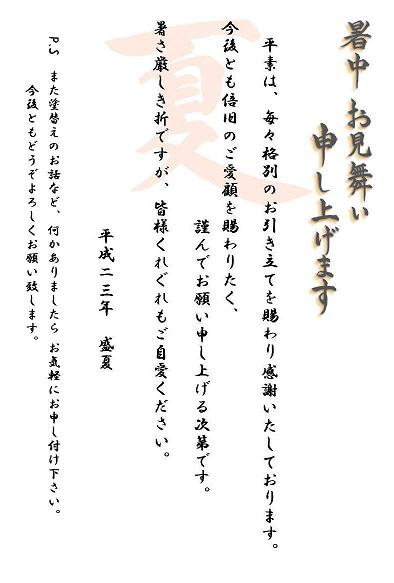 暑中お見舞い
申し上げます
平素は、毎々格別のお引き立てを賜わり感謝いたしております。
今後とも倍旧のご愛顧を賜わりたく、
謹んでお願い申し上げる次第です。
暑さ厳しき折ですが、皆様くれぐれもご自愛ください。
平成二三年　盛夏
P.S　また塗替えのお話など、何かありましたら お気軽にお申し付け下さい。
今後ともどうぞよろしくお願い致します。
夏